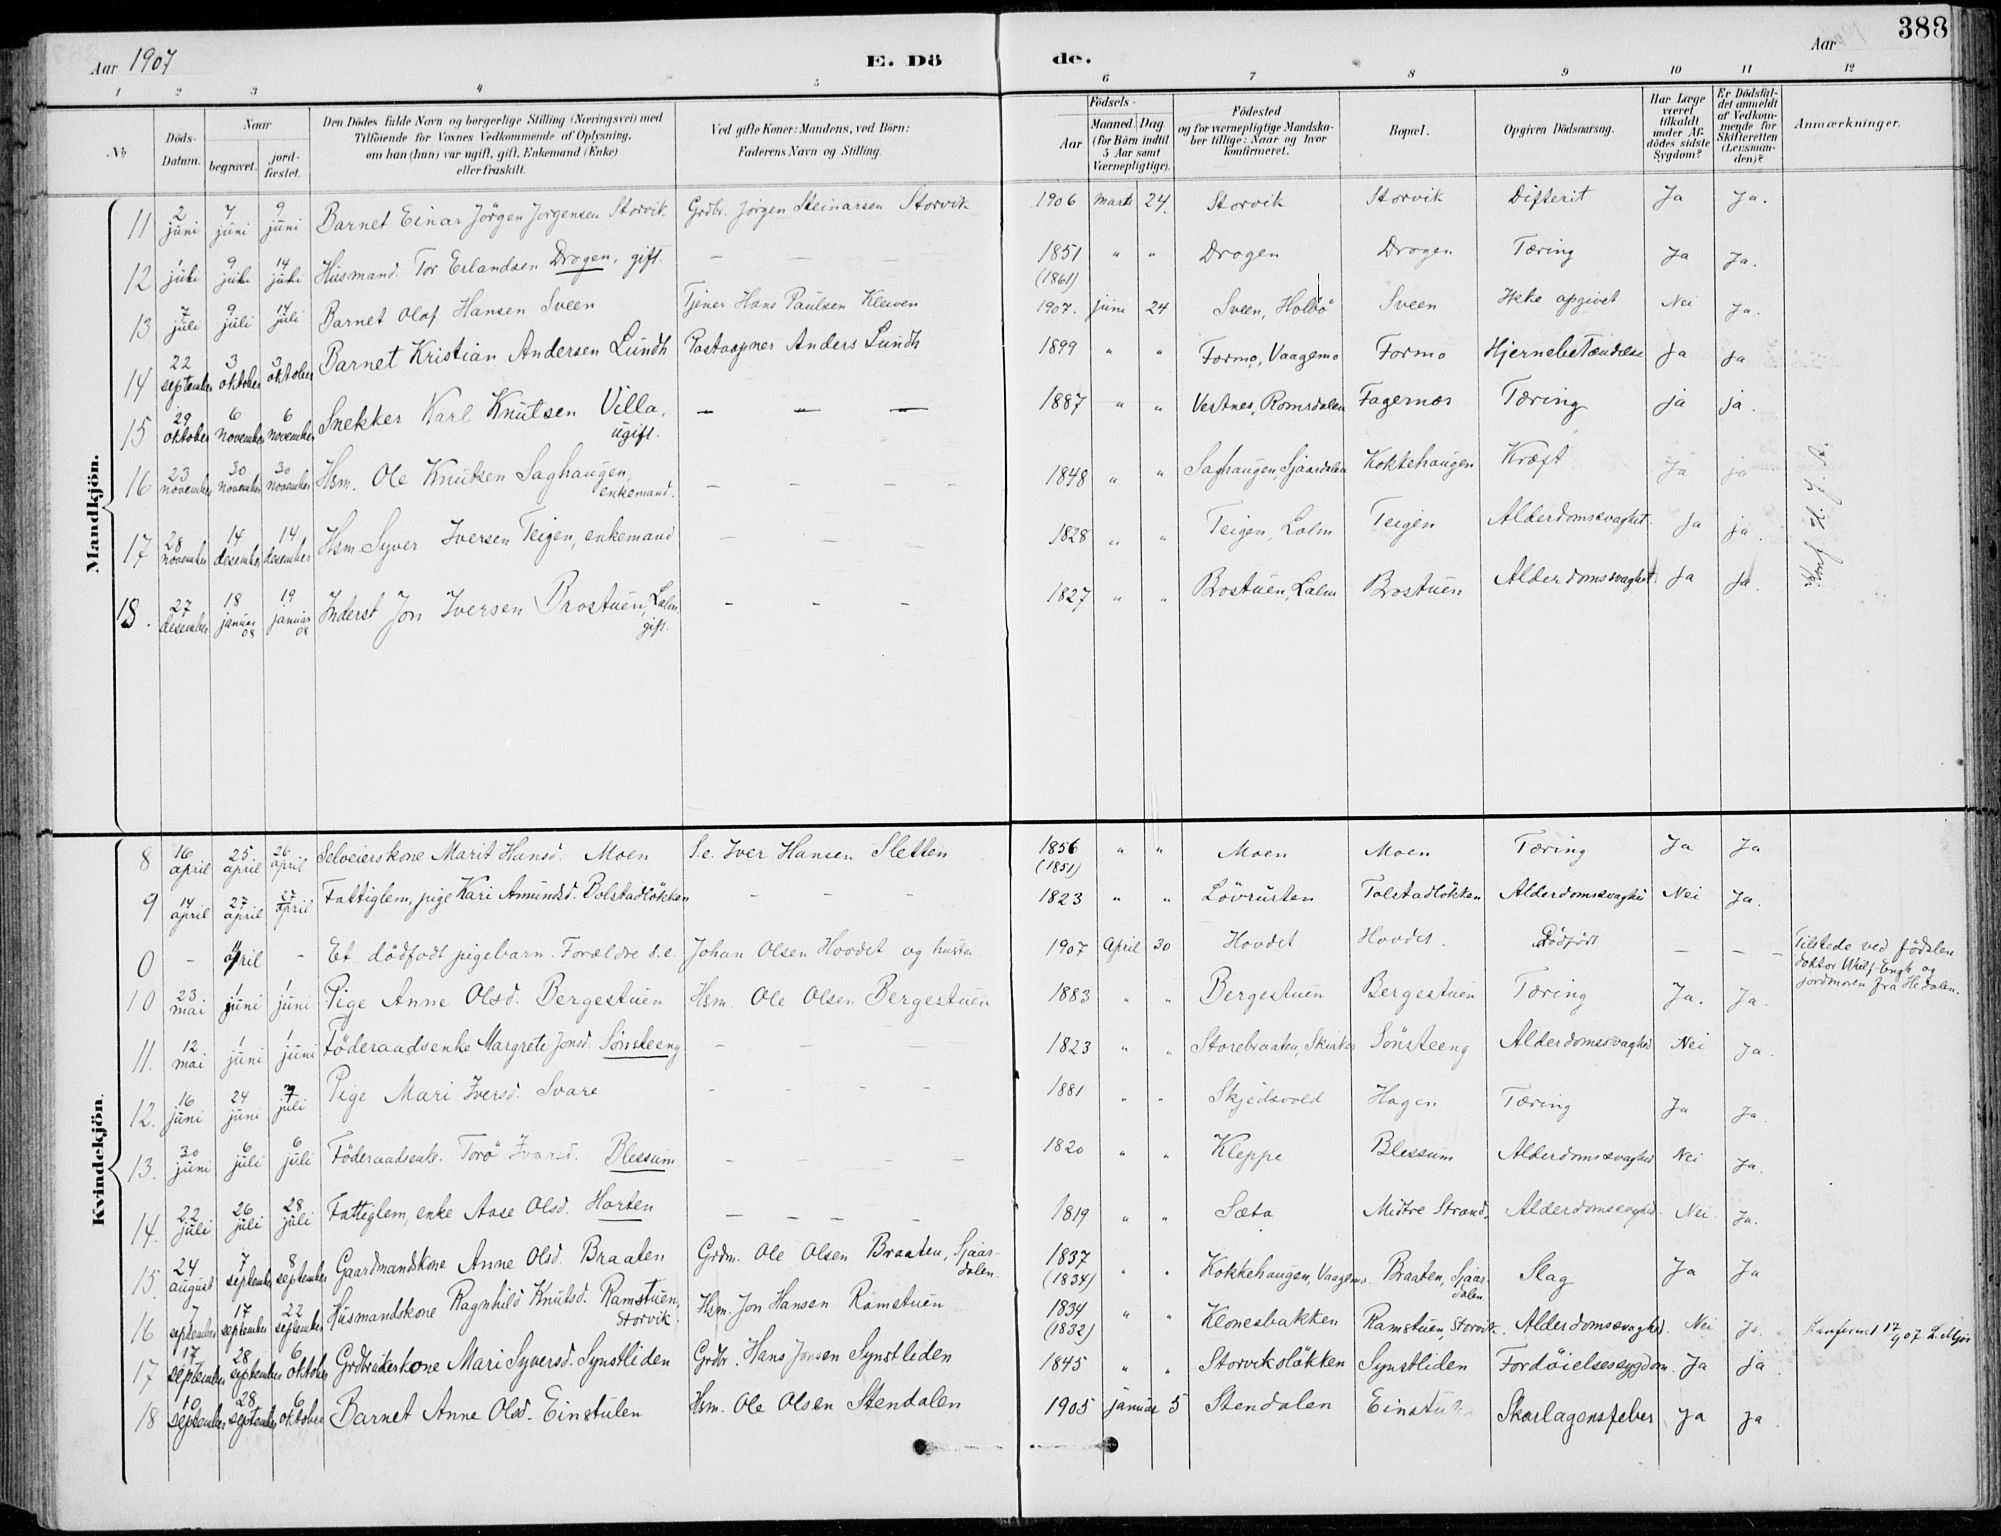 383
Aar 1907 E. Dö de. Aar
1 2 3 4 5 6 7 8 9 10 11 12
№ Döds-Datum. Naar begravet. jord-fæstet. Den Dödes fulde Navn og borgerlige Stilling (Næringsvei) med Tilföiende for Voxnes Vedkommende af Oplysning, om han (hun) var ugift, gift, Enkemand (Enke) eller fraskilt. Ved gifte Koner: Mandens, ved Börn: Faderens Navn og Stilling. Födsels- Aar Maaned. Dag (for Börn indtil 5 Aar samt Værnepligtige). Födested og for værnepligtige Mandskaber tillige: Naar og hvor konfirmeret. Bopæl. Opgiven Dödsaarsag. Har Læge været tilkaldt under Afdödes sidste Sygdom? Er Dödsfaldet anmeldt af Vedkommende for Skifteretten (Lensmanden)? Anmærkninger.
Mandkjön.
11 2 juni 7 juni 9 juni Barnet Einar Jörgen Jorgensen Storvik Grdbr. Jörgen Steinarsen Storvik 1906 Marts 24. Storvik Storvik Difterit Ja Ja.
12 1 juli 9 juli 14 juli Husmand. Tor Erlandsen Drogen, gift. — — — 1851 (1861) " " Drogen Drogen Tæring Ja Ja.
13 7 juli 9 juli 14 juli Barnet Olaf Hansen Sveen Tjener Hans Paulsen Kleiven 1907. juni 24 Sveen, Holbö Sveen Ikke opgivet Nei Ja.
14 22 september 3 oktober 3 oktober Barnet Kristian Andersen Lundh Postaapner Anders Lundh 1899 " " Formo, Vaagemo Formo Hjernebetændelse Ja Ja
15 29 oktober 6 november 6 november Snekker Karl Knutsen Villa, ugift. — — — 1887 " " Vestnes, Romsdalen Fagernes Tæring ja ja.
16 23 november 30 november 30 november Hsm. Ole Knutsen Saghaugen, enkemand. — — — — 1848 " " Saghaugen, Sjaardalen Kokkehaugen Kræft Ja ja
17 28 november 14 desember 14 desember Hsm Syver Iversen Teigen, enkemand — — — 1828 " " Teigen, Lalm Teigen Alderdomssvaghet Ja ja.
18. 27 desember 18 januar 08 19 januar 08 Inderst Jon Iversen Brostuen, Lalm, gift. — — — 1827 " " Brostuen, Lalm Brostuen Alderdomssvaghet Ja Ja.
Kvindekjön.
8 16 april 25 april 26 april Selveierskone Marit Hansd. Moen S.e. Iver Hansen Sletten 1856 (1851) " " Moen Moen Tæring Ja Ja
9 14 april 27 april 27 april Fattiglem, pige Kari Amundsd. Tolstadlökken — — — 1823 " " Lövrusten Tolstadlökken Alderdomssvaghed Nei Ja.
0 — april — Et dödfodt pigebarn. Forældre s.e. Johan Olsen Hovdet og hustru 1907 April 30 Hovdet Hovdet. Dödfödt — — — Tilstede ved födslen doktor Engh og jordmoren fra Hedalen.
10 23 mai 1 juni 1 juni Pige Anne Olsd. Bergestuen Hsm. Ole Olsen Bergestuen 1883 " " Bergestuen Bergestuen Tæring Ja. Ja.
11. 12 mai 1 juni 1 juni Föderaadsenke Margrete Jonsd. Sönsteeng — — — 1823 " " Storebraaten, Sönsteeng Alderdomssvaghed Nei Ja.
12. 16 juni 24 juni 7 juli Pige Mari Iversd. Svare — — — 1881 " " Skjedsvold Hagen Tæring Ja Ja.
13. 30 juni 6 juli 6 juli Föderaadsenke. Torö Ivarsd. Blessum — — — — 1820 " " Kleppe Blessum Alderdomssvaghed Nei Ja.
14. 22 juli 26 juli 28 juli Fattiglem, enke Aase Olsd. Horten — — — — 1819 " " Sæta Midtre Strand. Alderdomssvaghed. Nei. Ja.
15. 24 august 7 september 8 september Gaardmandskone Anne Olsd. Braaten Grdm. Ole Olsen Braaten, Sjaardalen. 1837 (1834) " " Kokkehaugen, Vaagemo. Braaten, Sjaardalen Slag Ja Ja
16 7 september 17 september 22 september Husmandskone Ragnhild Knutsd. Ramstuen, Storvik. Hsm. Jon Hansen Ramstuen 1834 (1832) " " Klonesbakken Ramstuen, Storvik. Alderdomssvaghed. Nei Ja. 17/9 07
17 17 september 28 september 6 oktober Grdbrukerkone Mari Syversd. Synstliden Grdbr. Hans Jonsen Synstliden 1845 " " Storvikslökken Synstliden Fordöielsessygdom. Ja ja
18 10 september 28 september 6 oktober Barnet Anne Olsd. Einstulen Hsm. Ole Olsen Stendalen 1905 januar 5 Stendalen Skarlagensfeber Ja Ja